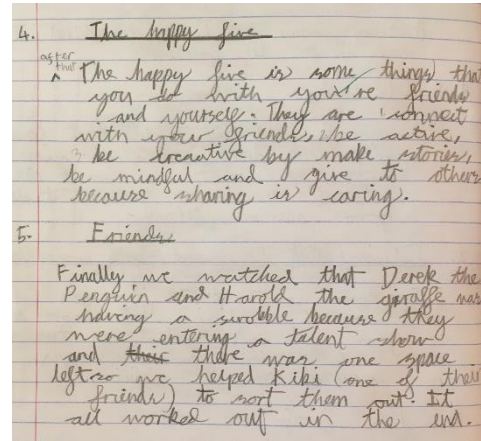 4. The happy five
after that
^ The happy five is some things tha
you do with you're friends
and yourself. They are 'connect
with your friends, be active,
3 be creative by make stories,
be mindful and give to others
because sharing is caring.
5. Friends
Finally we watched that Derek the
Penguin and Harold the giraffe was
having a swobble because they
were entering a talent show
and their there was one space
left so we helped Kiki (one of their
friends) to sort them out. It
all worked out in the end.